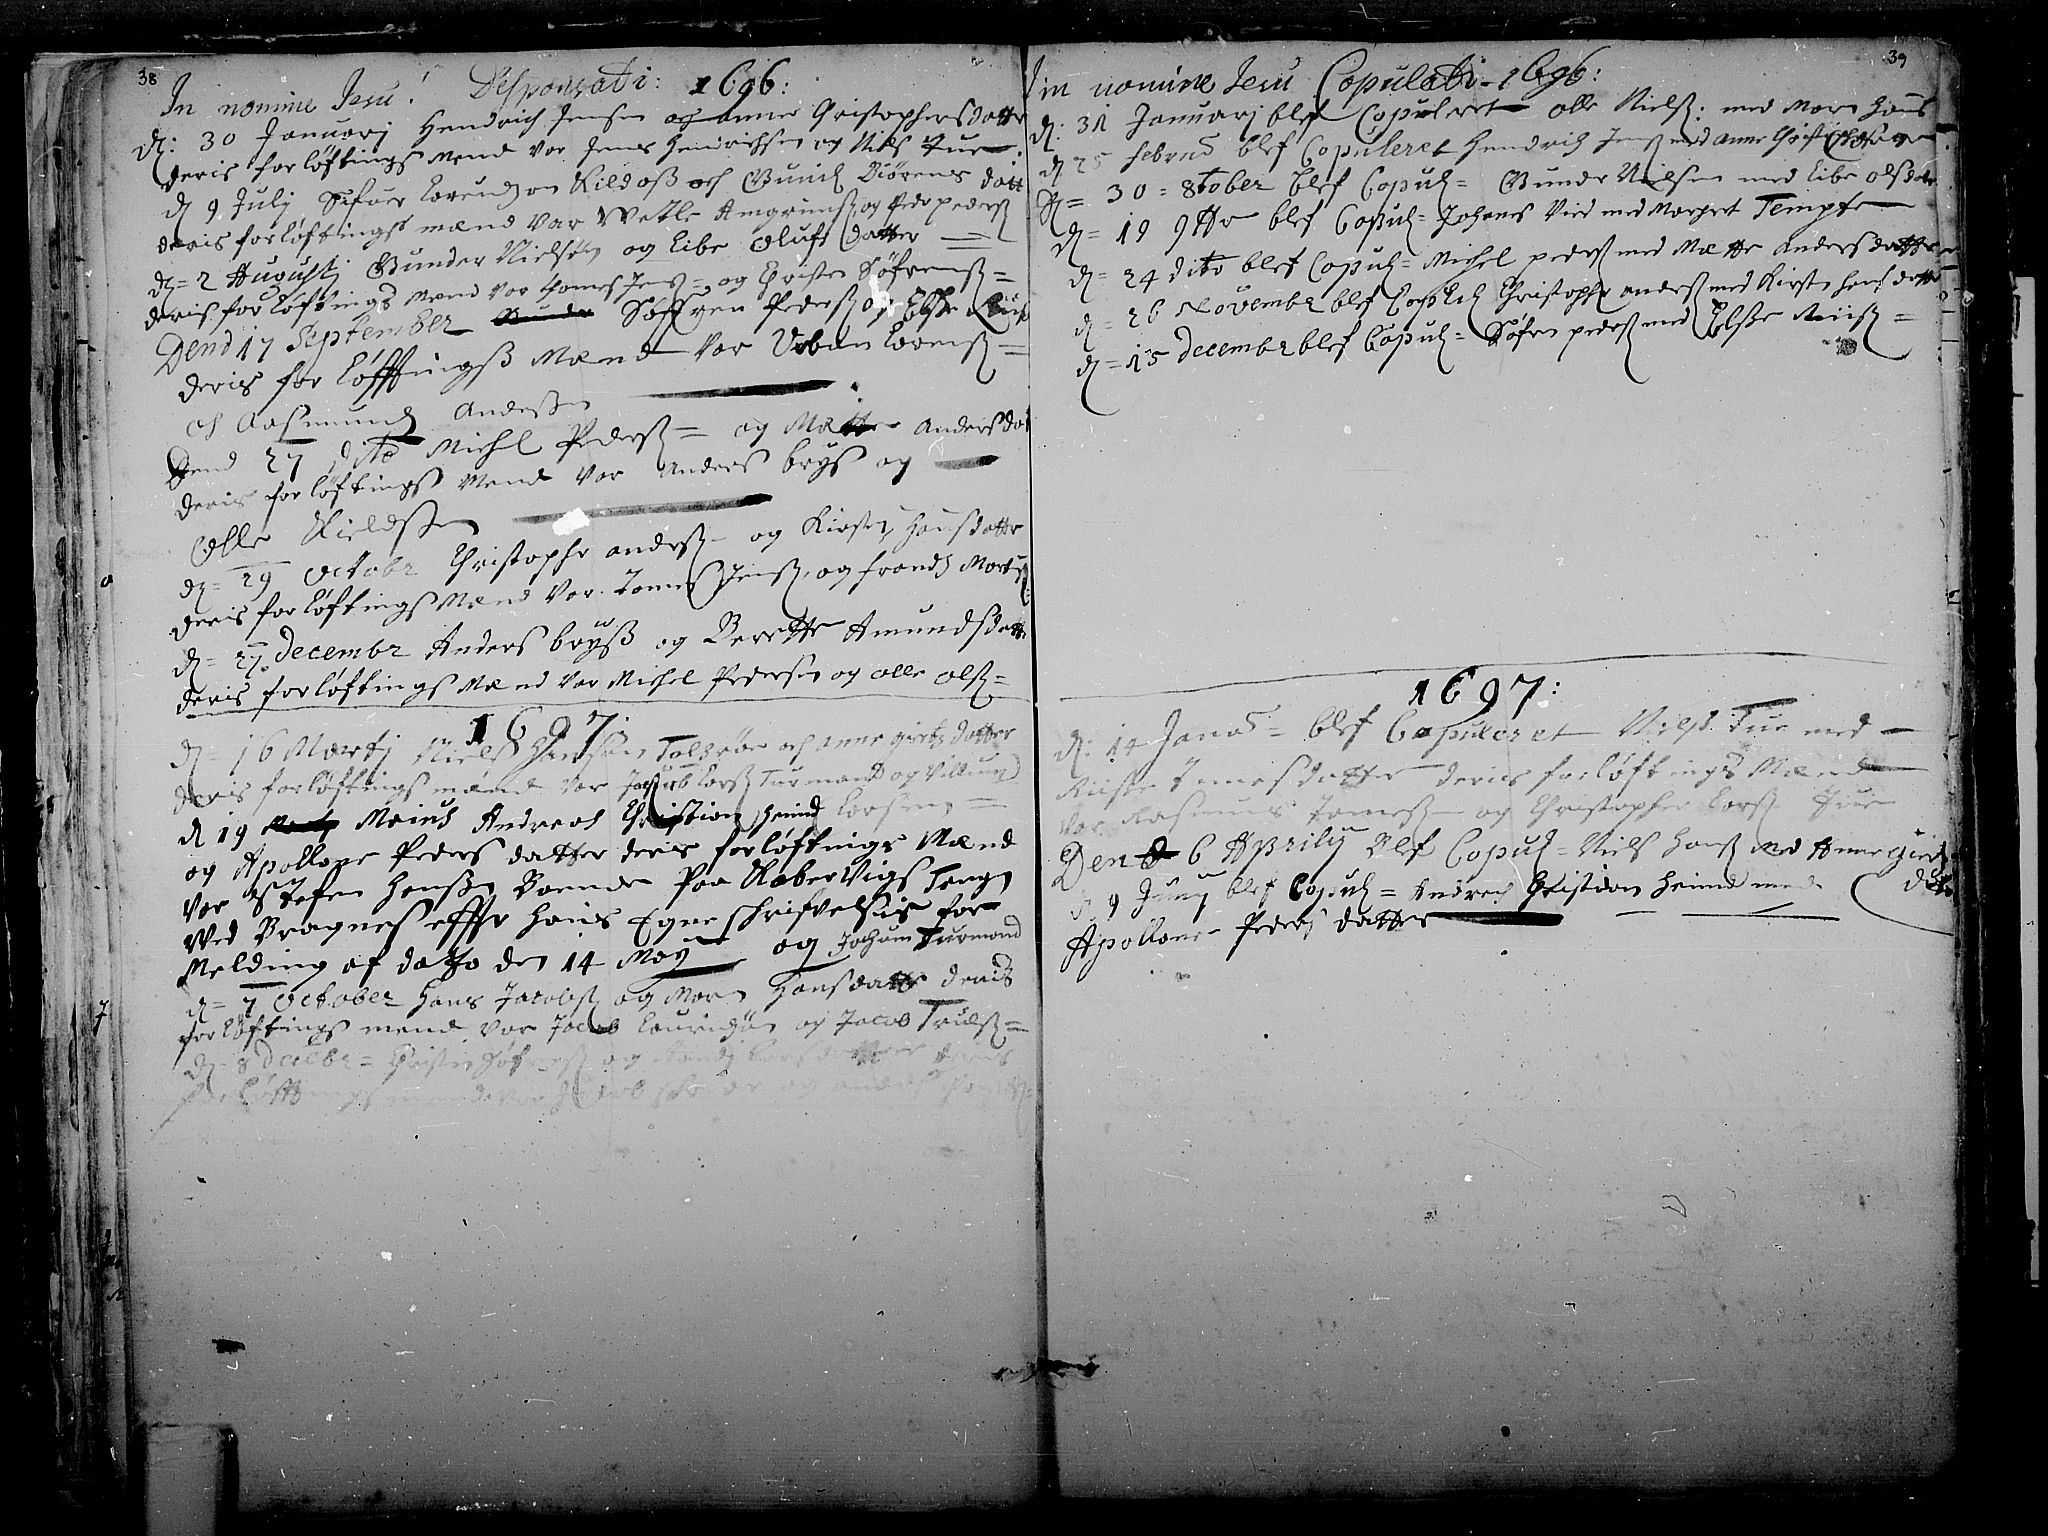 38
In nomine Jesu! Desponsati: 1696:
d: 30 Januarj Hendrich Jensen og anne Christophersdatter
deris forløftings Mend var Jens Hendrichsen og Niels Tue:
d 9 July Sifuer Lorendzen Kildoß och Gunild Biørens datt
deris forløftings mænd var Wetle Amgrimß og Peder pederß
d = 2 Augustj Gunder Nielsøn og Libe Olufs Datter
deris forløftings Mend var thomes Jenß = og Christen Søfrenß =
Dend 17 September Søffren Pederß og Elsße Riis
deris for løfftingß Mænd var Urban Lorenß =
och Rasmund Andersen
Dend 27 dito Michel Pederß = og Mætte Andersdat
deris forløftings Mend var Anders brys og
Olle Kieldsen
d = 29 Octobr Christopher anderß og Kirsten Hansdatter
deris forløftings Mænd var Tomes Jenß, og frands Mortß
d = 27 Decembr Anders bryß og Berette Amundsdatter
deris forløftings Mænd var Michel Pedersen og olle olß =
1697
d = 16 Martj Niels Hansen Tolderøe och anne giertz datter
deris forløftings mænd var Jochum Turmand og Villum
Larsen
d 19 Maius Andreas Christian Heind
og Apollone Peders datter deris forløftings Mænd
var Stefen Hansen Boende paa Robervigs Tangen
Ved Bragnes effter Hans Egne schriftvelsis for
Melding af datto den 14 May og Jochum Turmand
d = 7 October Hans Jacobß og Maren Hansdatter deris
forløftings mend var Jacob Lauridzøn og Jacob Truelß =
d 8 Decebr = Christen Søfrenß og Larsdatter deris
forløftings mend var Jacob og anders
39
In nomine Jesu Copulati = 1696:
d: 31 Januarj blef Copuleret olle Nielß: med Maren Hans
d 25 februa blef Copuleret Hendrich Jenß med anne Christophersdatter
d = 30 = 8tober blef Copul = Gunder Nielsen med Libe olsdatter
d = 19 9tbr blef Copul = Johanes Vied med Margret Tempte
d = 24 dito blef Copul = Michel pederß med Mætte Andersdatter
d = 26 November blef Copul Christopher anderß med Kirsten Hans datter
d = 15 decembr blef Copul = Søfren pederß med Elsße Riisß =
1697:
d: 14 Jana = blef Copuleret Nielß Tue med
Kirste Jensdatter deris forløftings Mænd
var Rasmus Tomesß og Christopher Larß Tue
Den 6 Aprily Blef Copul = Niels Hansß med Anne giertz
datt
d 9 Juny blef Copul = Andreas Christian Heind med
Apollone Peders datter